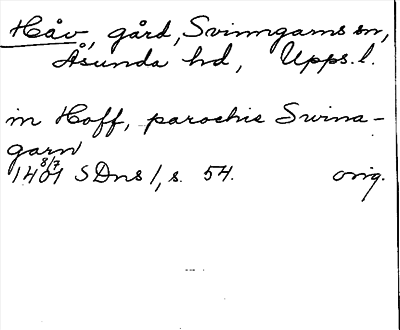 Håv, gård, Svinngarns sn,
Åsunda hd, Upps. l.
in Hoff, parochie Swina-
garn
8/7
1401 SDns 1, s. 54. orig.